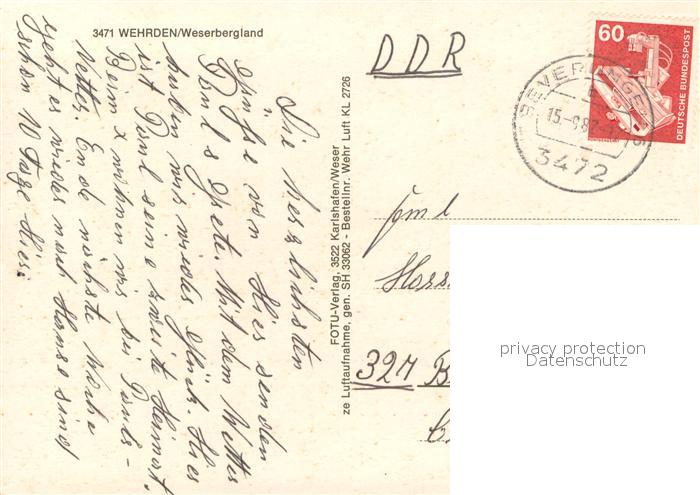 3471 WEHRDEN/Weserbergland
Die herzlichsten
Grüße von Hier senden
Paul & Grete. Mit dem Wetter
haben wir wieder Glück. Hier
ist Paul seine zweite Heimat.
Beim x wohnen wir bei Pauls-
Vetter. Ende nächste Woche
geht es wieder nach Hause sind
schon 10 Tage Hier.
FOTU-Verlag, 3522 Karlshafen/Weser
ze Luftaufnahme, gen. SH 33062 - Bestellnr. Wehr Luft KL 2726
DDR
60
DEUTSCHE BUNDESPOST
BEVERUNGEN
15.-9.82
3472
Horst
327 B
privacy protection
Datenschutz